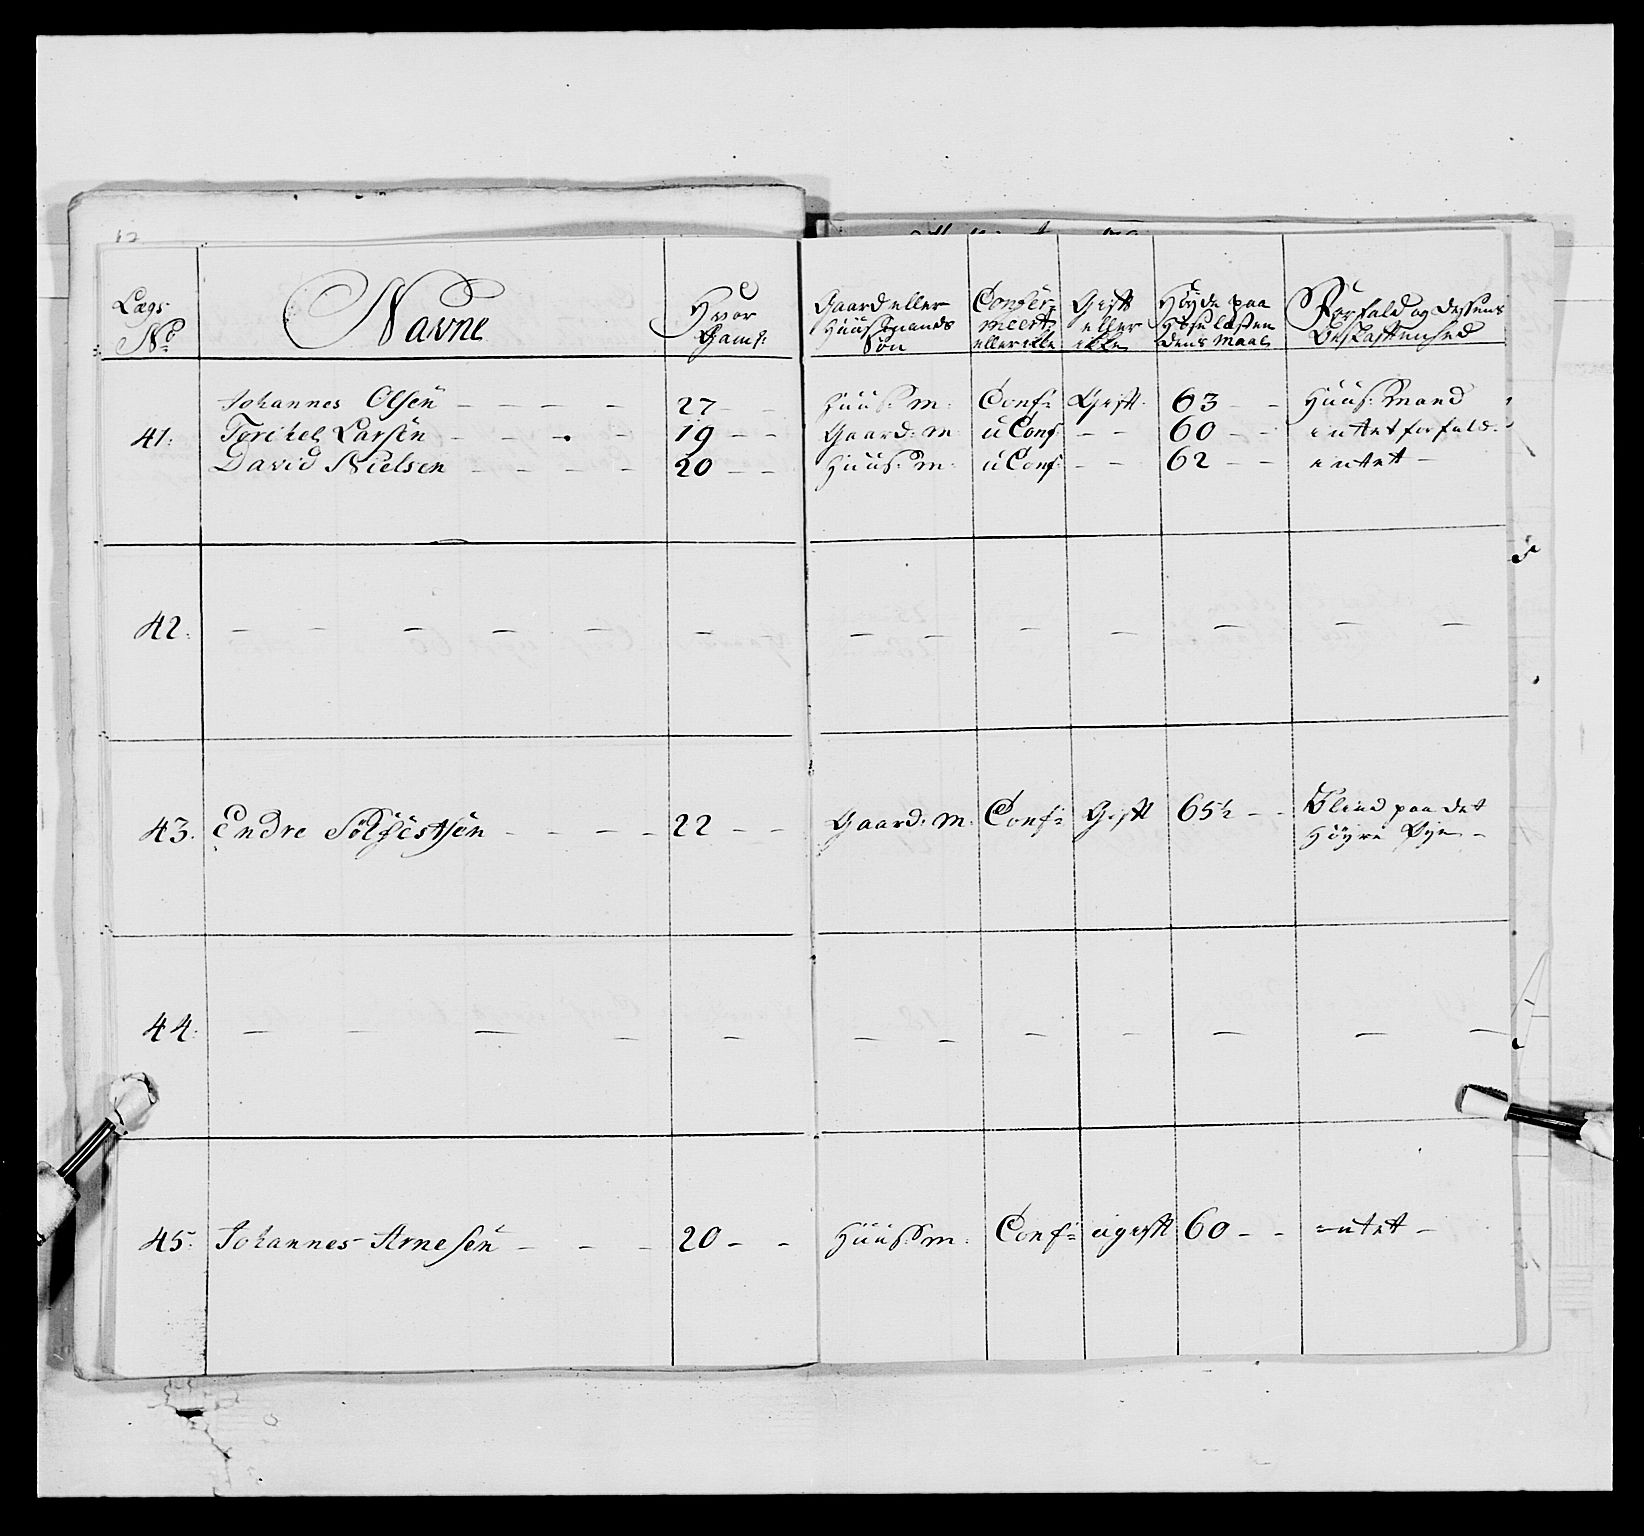 Lægs No Navne Hvor Gaml: Gaard eller Huusmands Søn Confir- meert eller ikke Gift eller ikke Høyde paa Hosulæsten dens Maal Forfald og dessens Beskaffenhed
Johannes Olsen - - - - 27 - - Huus: m: Conf: Gift 63 - - Huus: Mand
41. Torckel Larsen - - - - 19 - - Gaard: m: uConf - - 60 - - intet forfald.
David Nielsen - - - - 20 - - Huus: m: uConf - - 62 - - intet -
42. - - - - - - - - - - - - -
43. Endre Sølfestsen - - - - 22 - - Gaard: m: Conf: Gift 65½ - - Blind paa det
Høyre Øye -
44. - - - - - - - - - - - -
45. Johannes Arnesen - - - 20 - - Huus: m: Conf: ugift 60 - - intet -